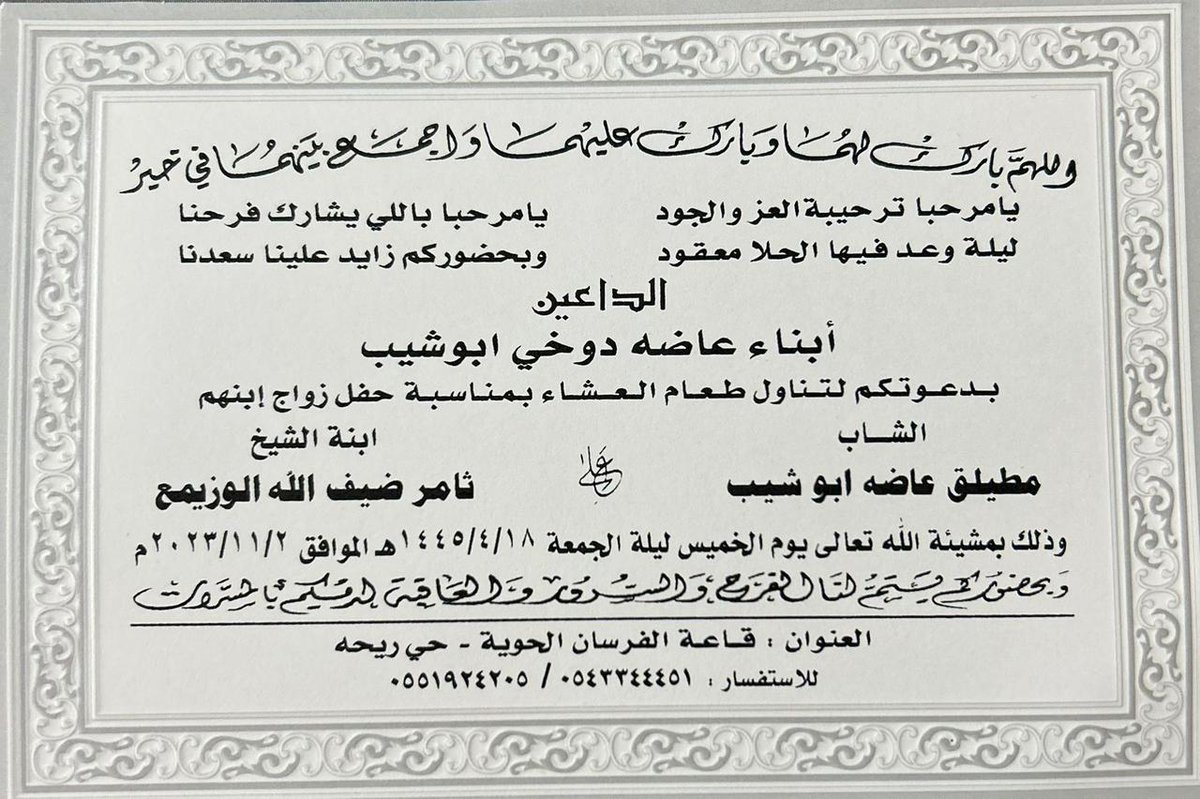 اللهم بارك لهما وبارك عليهما واجمع بينهما في خير
يامرحبا ترحيبة العز والجود يامرحبا باللي يشارك فرحنا
ليلة وعد فيها الحلا معقود وبحضوركم زايد علينا سعدنا
الداعين
أبناء عاضه دوخي ابوشيب
بدعوتكم لتناول طعام العشاء بمناسبة حفل زواج إبنهم
الشاب ابنة الشيخ
مطيلق عاضه ابو شيب على ثامر ضيف الله الوزيمع
وذلك بمشيئة الله تعالى يوم الخميس ليلة الجمعة ١٤٤٥/٤/١٨هـ الموافق ٢٠٢٣/١١/٢م
وبحضوركم يتم لنا الفرح والسرور والعاقبة لديكم بالمسرات
العنوان : قاعة الفرسان الحوية - حي ريحه
للاستفسار : ٠٥٤٣٣٤٤٤٥١ / ٠٥٥١٩٢٤٢٠٥